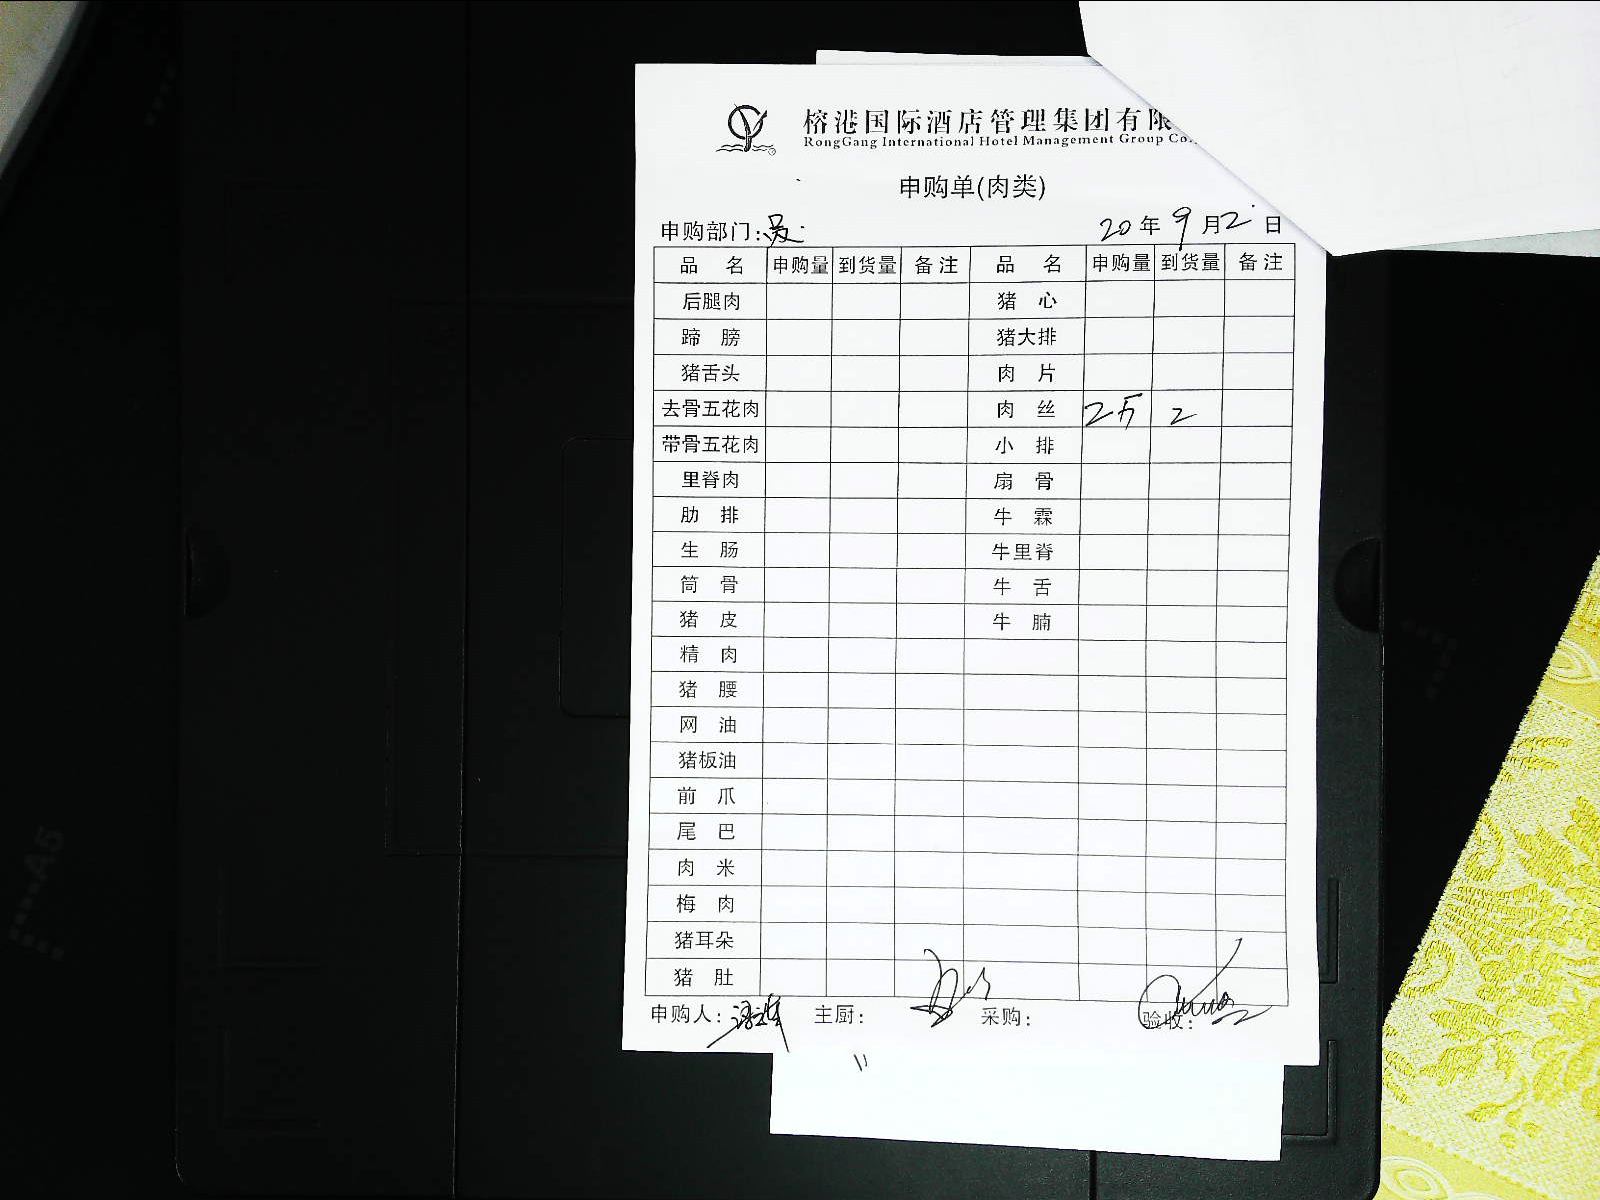 榕港国际酒店管理集团有限
RongGang International Hotel Management Group Co.,
申购单(肉类)
申购部门:
20年9月2日
品名 申购量 到货量 备注 品名 申购量 到货量 备注
后腿肉 猪心
蹄膀 猪大排
猪舌头 肉片
去骨五花肉 肉丝 2斤 2
带骨五花肉 小排
里脊肉 扇骨
肋排 牛霖
生肠 牛里脊
筒骨 牛舌
猪皮 牛腩
精肉
猪腰
网油
猪板油
前爪
尾巴
肉米
梅肉
猪耳朵
猪肚
申购人: 主厨: 采购: 验收: